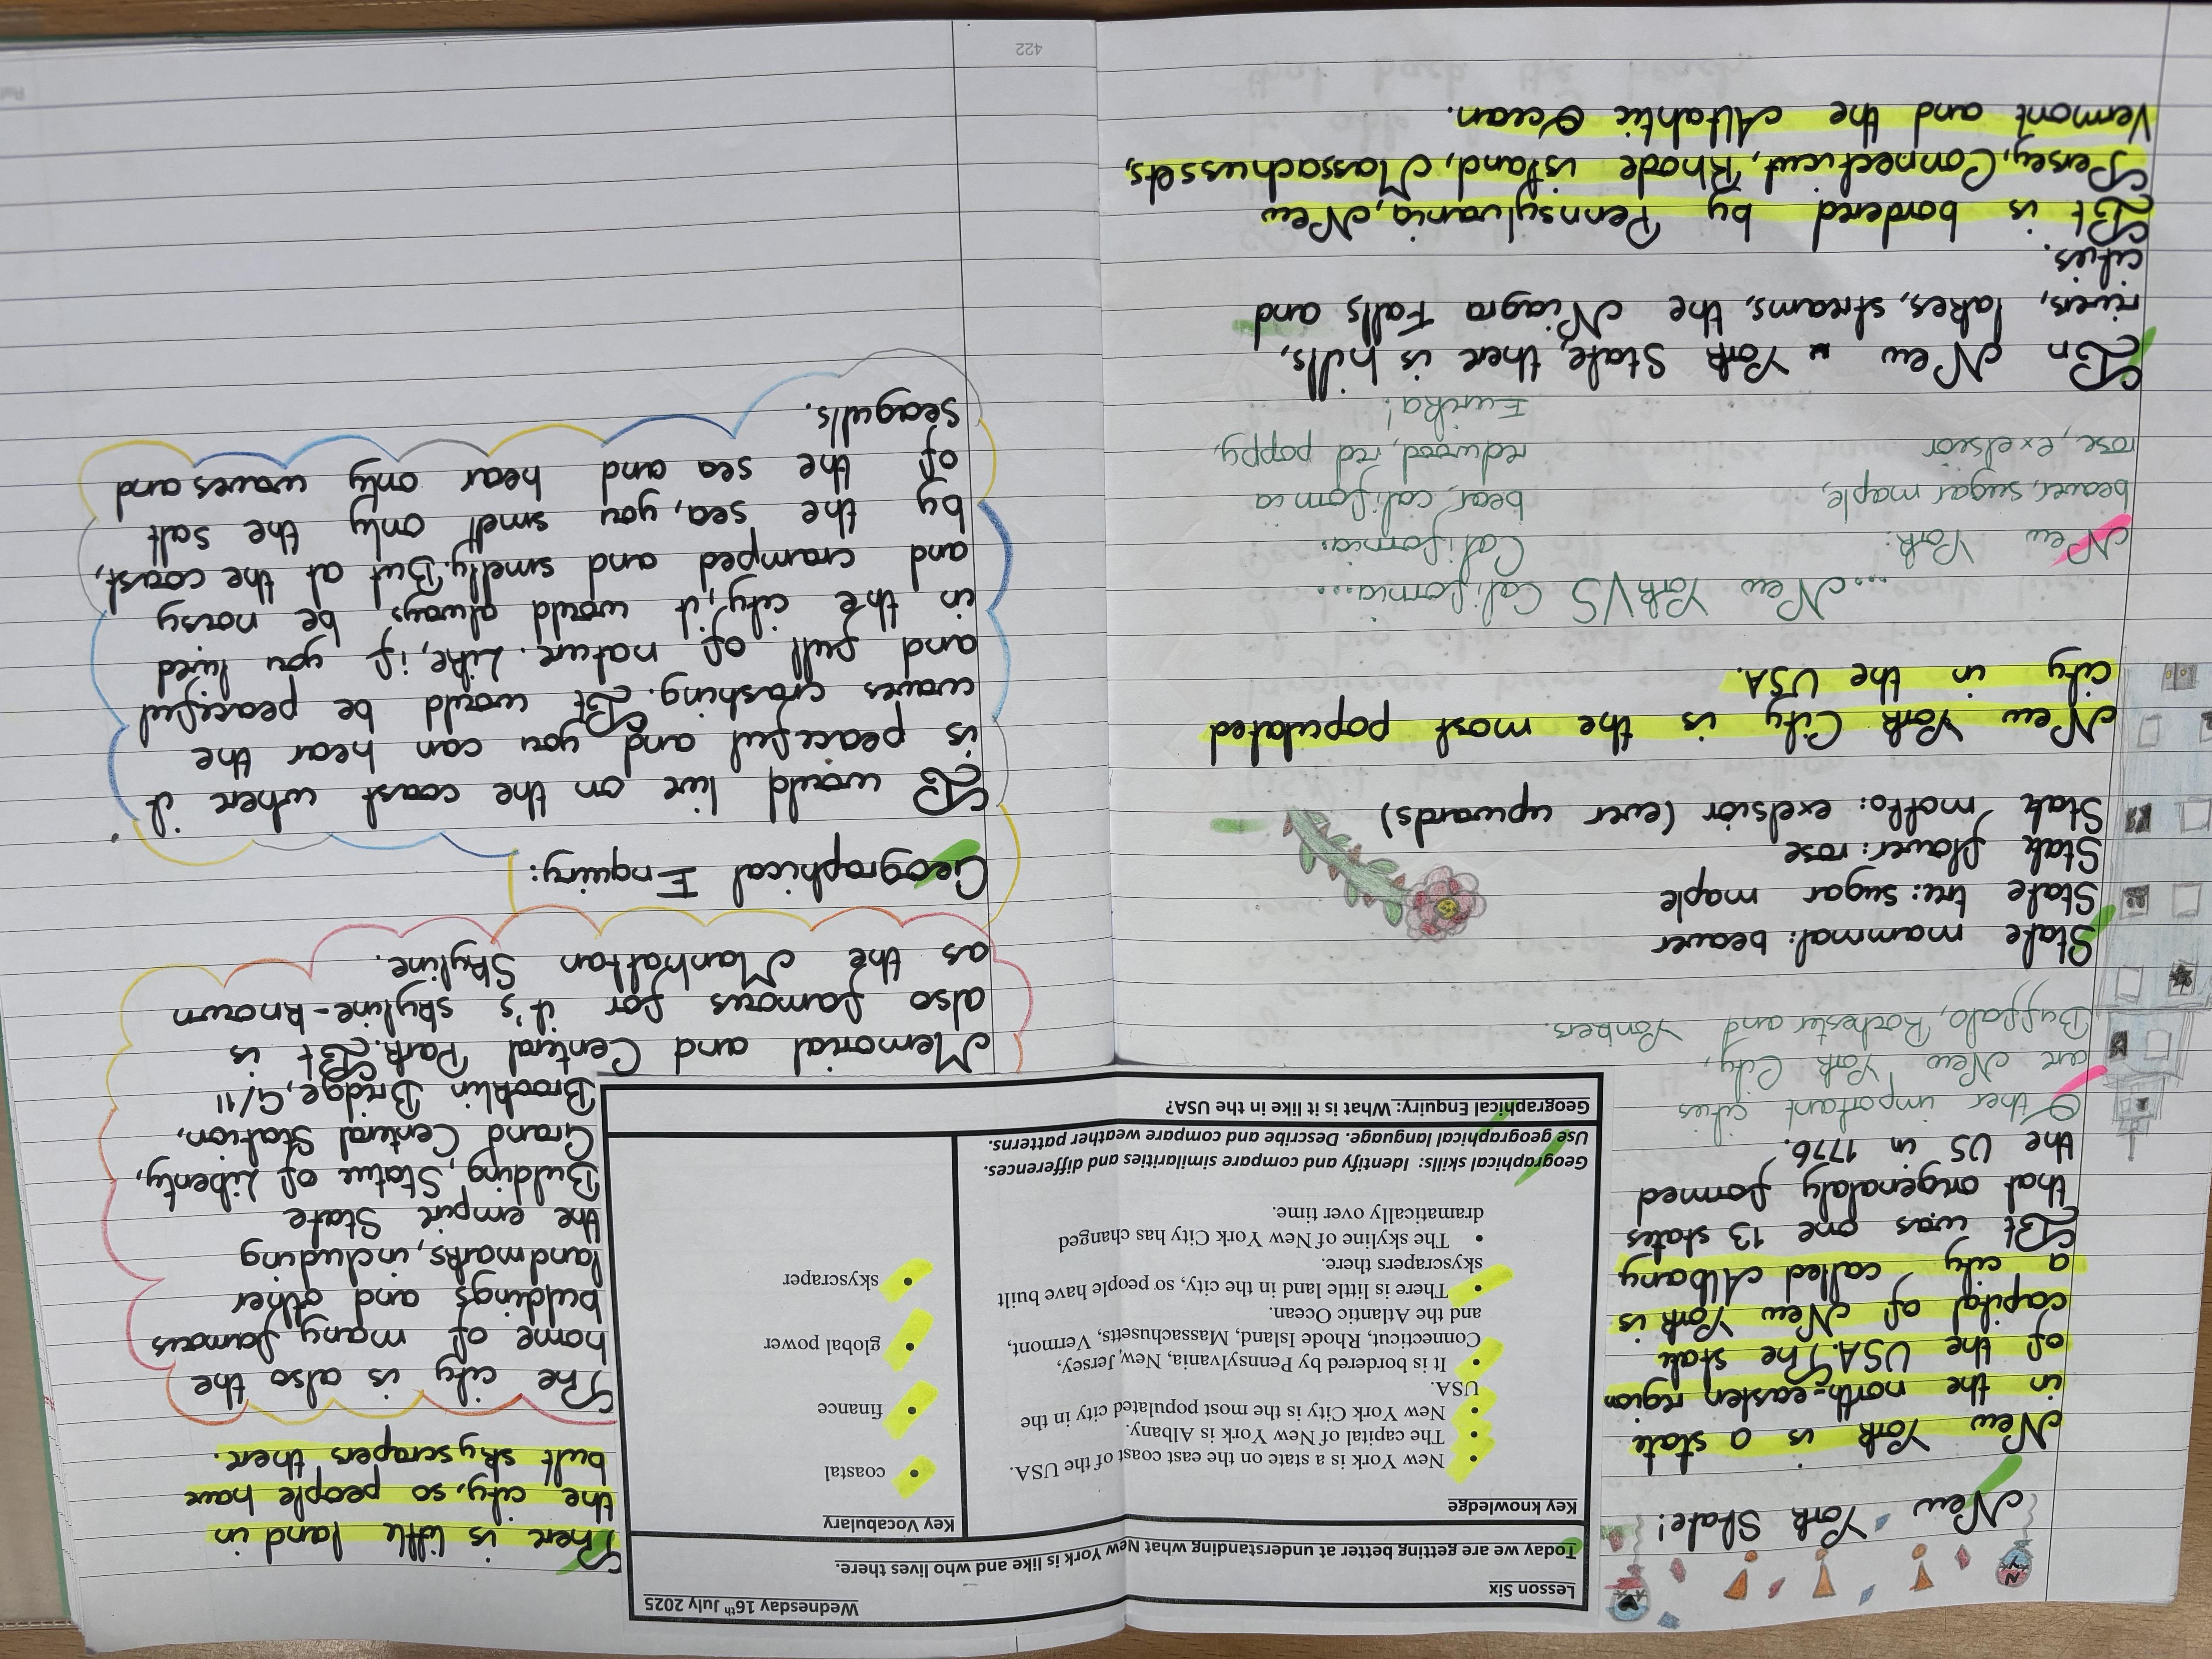 New York State!
New York is a state
in the north-easten region
of the USA. The state
capital of New York is
a city called Albany
It was one 13 states
that origenaly formed
the US in 1776.
Other important cities
are New York City,
Buffalo, Rochester and Yonkers.
State mammal: beaver
State tree: sugar maple
State flower: rose
State motto: exelsior (ever upwards)
New York City is the most populated
city in the USA.
...New York VS California...
New York:
beaver, sugar maple,
rose, exelsior
California:
bear, california
redwood, red poppy,
Eurika!
In New York State, there is hills,
rivers, lakes, streams, the Niagra Falls and
cities.
It is bordered by Pennsylvania, New
Jersey, Connecticut, Rhode island, Massachussets,
Vermont and the Altahtic Ocean.
Lesson Six
Wednesday 16th July 2025
Today we are getting better at understanding what New York is like and who lives there.
Key knowledge
• New York is a state on the east coast of the USA.
• The capital of New York is Albany.
• New York City is the most populated city in the
USA.
• It is bordered by Pennsylvania, New Jersey,
Connecticut, Rhode Island, Massachusetts, Vermont,
and the Atlantic Ocean.
• There is little land in the city, so people have built
skyscrapers there.
• The skyline of New York City has changed
dramatically over time.
Key Vocabulary
• coastal
• finance
• global power
• skyscraper
Geographical skills: Identify and compare similarities and differences.
Use geographical language. Describe and compare weather patterns.
Geographical Enquiry: What is it like in the USA?
There is little land in
the city, so people have
built skyscrapers there.
The city is also the
home of many famous
buldings and other
landmarks, including
the empire State
Bulding, Statue of Liberty,
Grand Central Station,
Brooklin Bridge, 9/11
Memorial and Central Park. It is
also famous for it's skyline-known
as the Manhattan Skyline.
Geographical Enquiry:
I would live on the coast where it
is peaceful and you can hear the
waves crashing. It would be peaceful
and full of nature. Like, if you lived
in the city, it would always be noisy
and cramped and smelly. But at the coast,
by the sea, you smell only the salt
of the sea and hear only waves and
seagulls.
422
NY